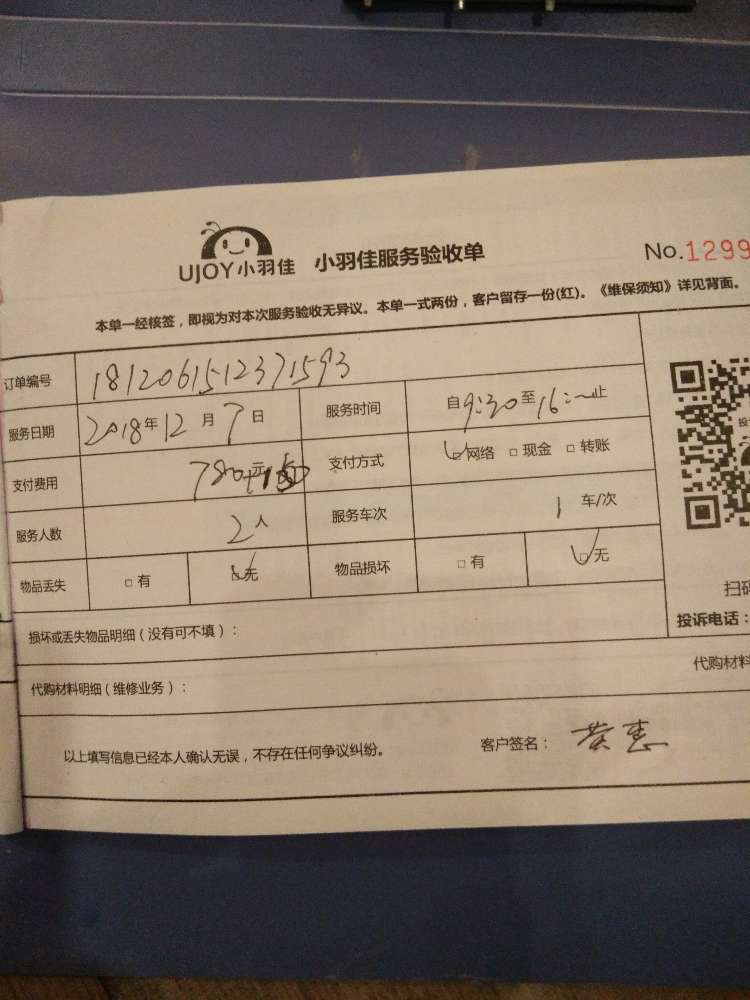 UJOY小羽佳 小羽佳服务验收单 No.1299
本单一经核签，即视为对本次服务验收无异议。本单一式两份，客户留存一份(红)。《维保须知》详见背面。
订单编号 1812061512371593
服务日期 2018年12月7日 服务时间 自9:30至16:~止
支付费用 780元 支付方式 网络 □现金 □转账
服务人数 2人 服务车次 1车/次
物品丢失 □有 □无 物品损坏 □有 □无
扫码
损坏或丢失物品明细（没有可不填）： 投诉电话：
代购材料明细（维修业务）： 代购材料
以上填写信息已经本人确认无误，不存在任何争议纠纷。 客户签名：黄惠